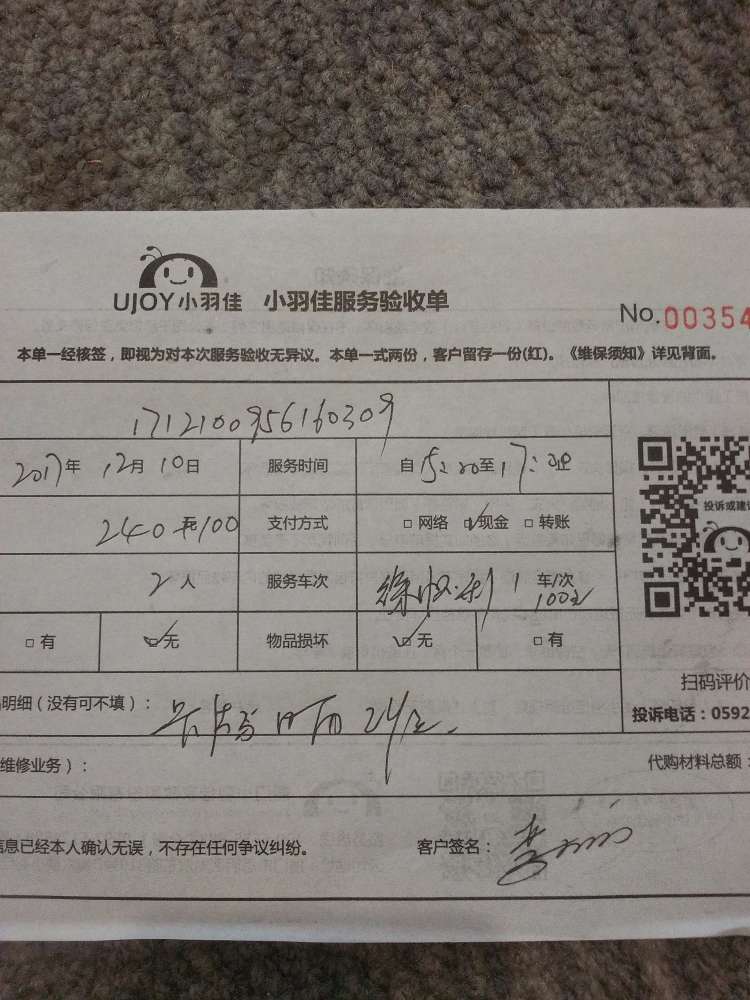 UJOY小羽佳 小羽佳服务验收单
No.00354
本单一经核签，即视为对本次服务验收无异议。本单一式两份，客户留存一份(红)。《维保须知》详见背面。
1712100956160309
2017年 12月 10日 服务时间 自15:20至17:
投诉或建议
240 100 支付方式 □ 网络 ☑现金 □ 转账
2人 服务车次 1 车/次
100元
□ 有 ☑无 物品损坏 ☑无 □ 有
扫码评价
明细（没有可不填）：
投诉电话：0592
维修业务）：
代购材料总额：
信息已经本人确认无误，不存在任何争议纠纷。 客户签名：